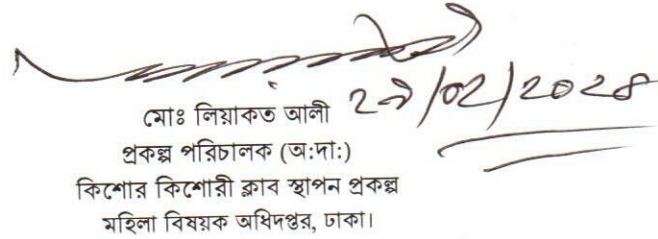 মোঃ লিয়াকত আলী
প্রকল্প পরিচালক (অ:দা:)
কিশোর কিশোরী ক্লাব স্থাপন প্রকল্প
মহিলা বিষয়ক অধিদপ্তর, ঢাকা।